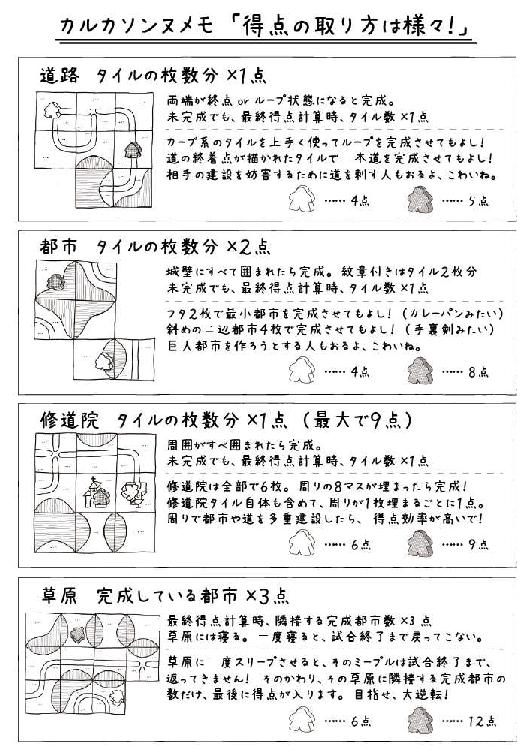 カルカソンヌメモ「得点の取り方は様々!」
道路 タイルの枚数分×1点
両端が終点 or ループ状態になると完成。
未完成でも、最終得点計算時、タイル数×1点
カーブ系のタイルを上手く使ってループを完成させてもよし!
道の終着点が描かれたタイルで 本道を完成させてもよし!
相手の建設を妨害するために道を刺す人もおるよ、こわいね。
……4点 ……5点
都市 タイルの枚数分×2点
城壁にすべて囲まれたら完成。紋章付きはタイル2枚分
未完成でも、最終得点計算時、タイル数×1点
フタ2枚で最小都市を完成させてもよし!(カレーパンみたい)
斜めの二辺都市4枚で完成させてもよし!(手裏剣みたい)
巨人都市を作ろうとする人もおるよ、こわいね。
……4点 ……8点
修道院 タイルの枚数分×1点(最大で9点)
周囲がすべ囲まれたら完成。
未完成でも、最終得点計算時、タイル数×1点
修道院は全部で6枚。周りの8マスが埋まったら完成!
修道院タイル自体も含めて、周りが1枚埋まるごとに1点。
周りで都市や道を多重建設したら、得点効率が高いで!
……6点 ……9点
草原 完成している都市×3点
最終得点計算時、隣接する完成都市数×3点
草原には寝る。一度寝ると、試合終了まで戻ってこない。
草原に 度スリープさせると、そのミープルは試合終了まで、
返ってきません! そのかわり、その草原に隣接する完成都市の
数だけ、最後に得点が入ります。目指せ、大逆転!
……6点 ……12点